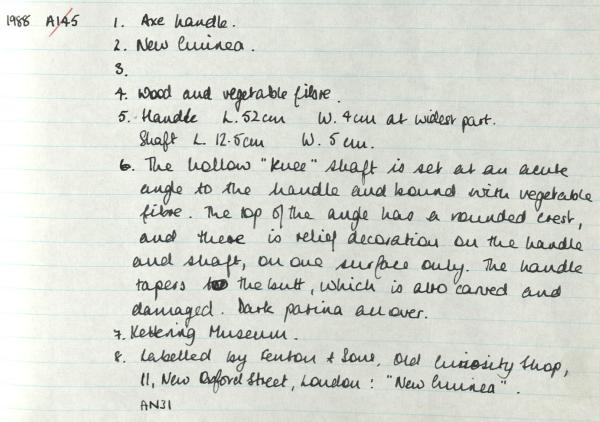 1988 A145 1. Axe handle.
2. New Guinea.
3.
4. Wood and vegetable fibre.
5. Handle L. 52cm W. 4cm at widest part.
Shaft L. 12.5cm W. 5cm.
6. The hollow "knee" shaft is set at an acute
angle to the handle and bound with vegetable
fibre. The top of the angle has a rounded crest,
and there is relief decoration on the handle
and shaft, on one surface only. The handle
tapers to the butt, which is also carved and
damaged. Dark patina all over.
7. Kettering Museum.
8. Labelled by Fenton & Sons, Old Curiosity Shop,
11, New Oxford Street, London : "New Guinea".
AN31